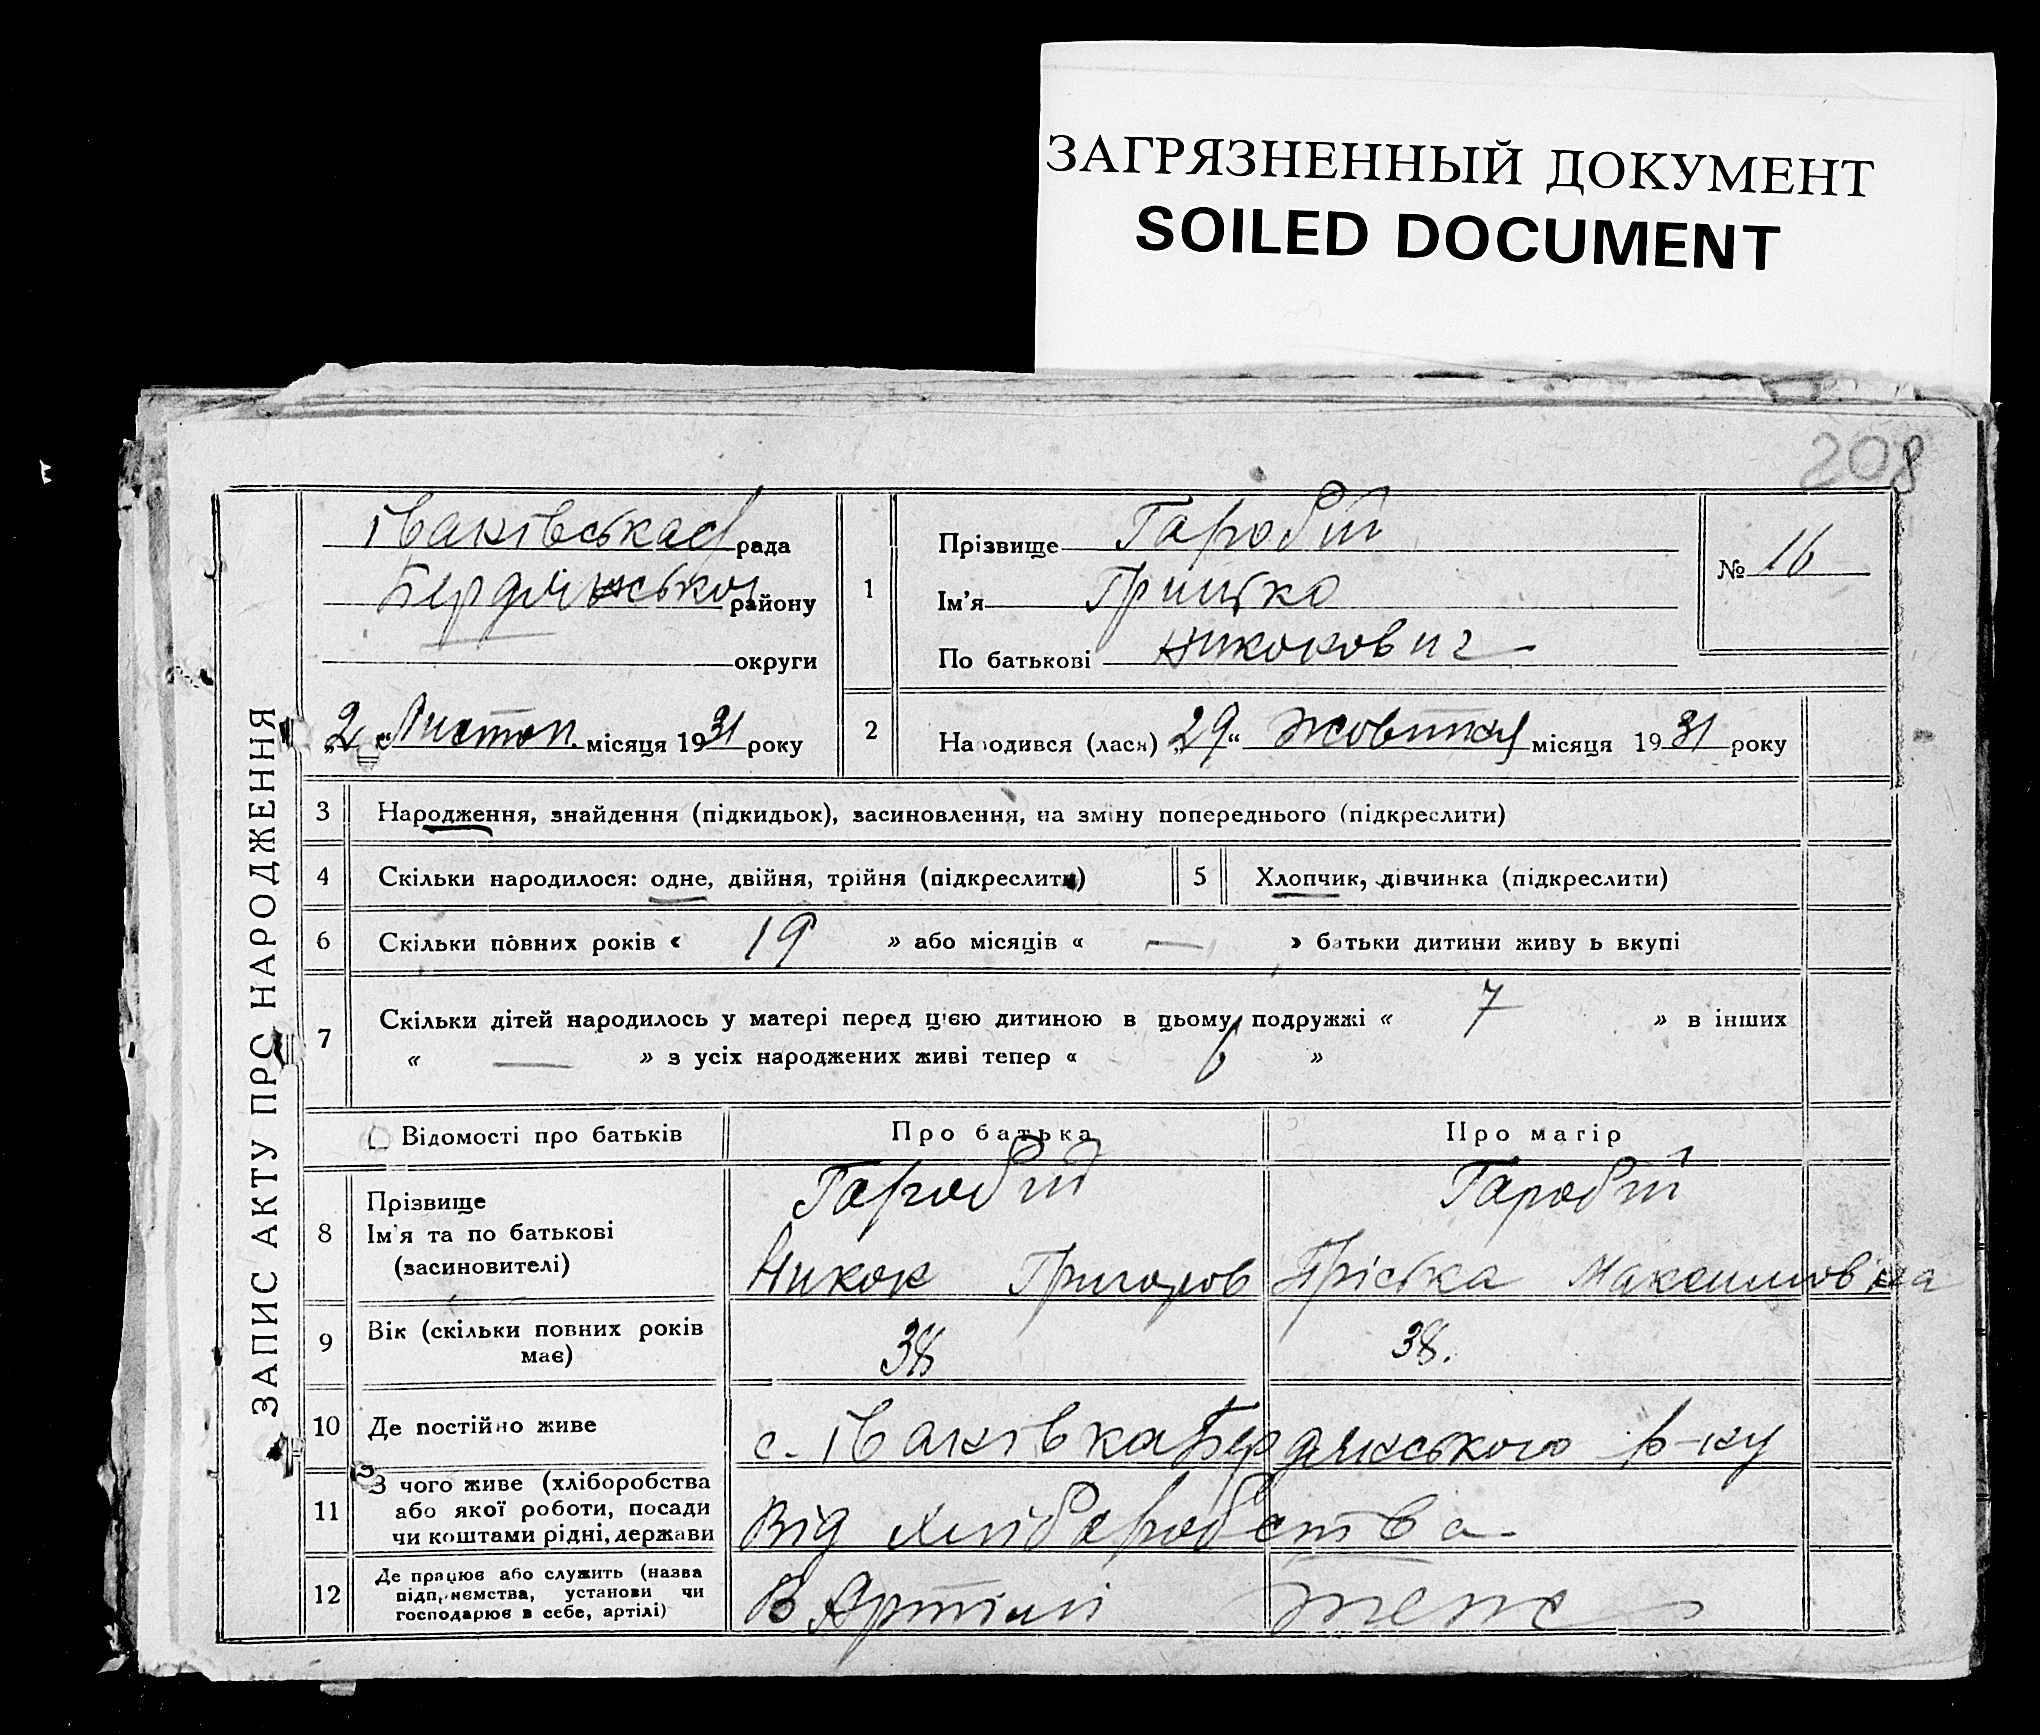 ЗАГРЯЗНЕННЫЙ ДОКУМЕНТ
SOILED DOCUMENT
208
ЗАПИС АКТУ ПРО НАРОДЖЕННЯ
Іванівська рада
Бердянського району
округи
„2“ Листоп. місяця 1931 року
1
Прізвище Гаробій
Ім'я Грицько
По батькові Никонович
№ 16
2
Народився (лася) „29“ жовтня місяця 1931 року
3 Народження, знайдення (підкидьок), засиновлення, на зміну попереднього (підкреслити)
4 Скільки народилося: одне, двійня, трійня (підкреслити)
5 Хлопчик, дівчинка (підкреслити)
6 Скільки повних років « 19 » або місяців « — » батьки дитини живуть вкупі
7 Скільки дітей народилось у матері перед цією дитиною в цьому подружжі « 7 » в інших
« — » з усіх народжених живі тепер « 6 »
Відомості про батьків
Про батька
Про матір
8 Прізвище
Ім'я та по батькові
(засиновителі)
Гаробій
Никон Григоров
Гаробій
Пріська Максимовна
9 Вік (скільки повних років
має)
38
38.
10 Де постійно живе
с. Іванівка Бердянського р-ну
11 З чого живе (хліборобства
або якої роботи, посади
чи коштами рідні, держави
Від хліборобства
12 Де працює або служить (назва
підприємства, установи чи
господарює в себе, артілі)
В Артілі
теже